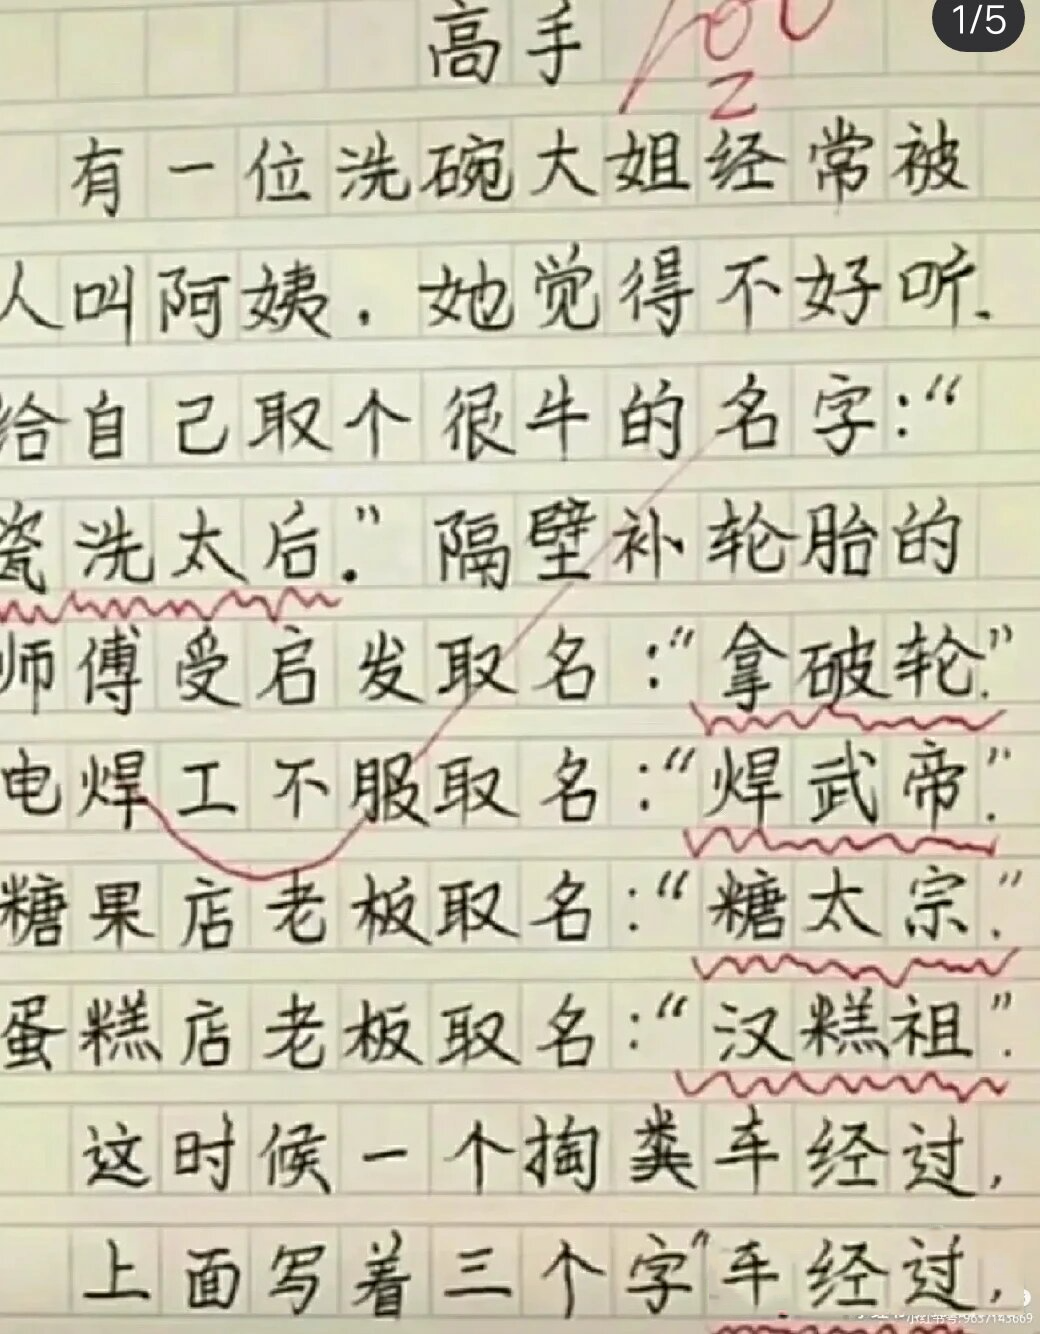 1/5
高手
100
有一位洗碗大姐经常被
人叫阿姨.她觉得不好听.
给自己取个很牛的名字:“
瓷洗太后.”隔壁补轮胎的
师傅受启发取名:“拿破轮.”
电焊工不服取名:“焊武帝.”
糖果店老板取名:“糖太宗.”
蛋糕店老板取名:“汉糕祖”.
这时候一个掏粪车经过,
上面写着三个字“车经过,